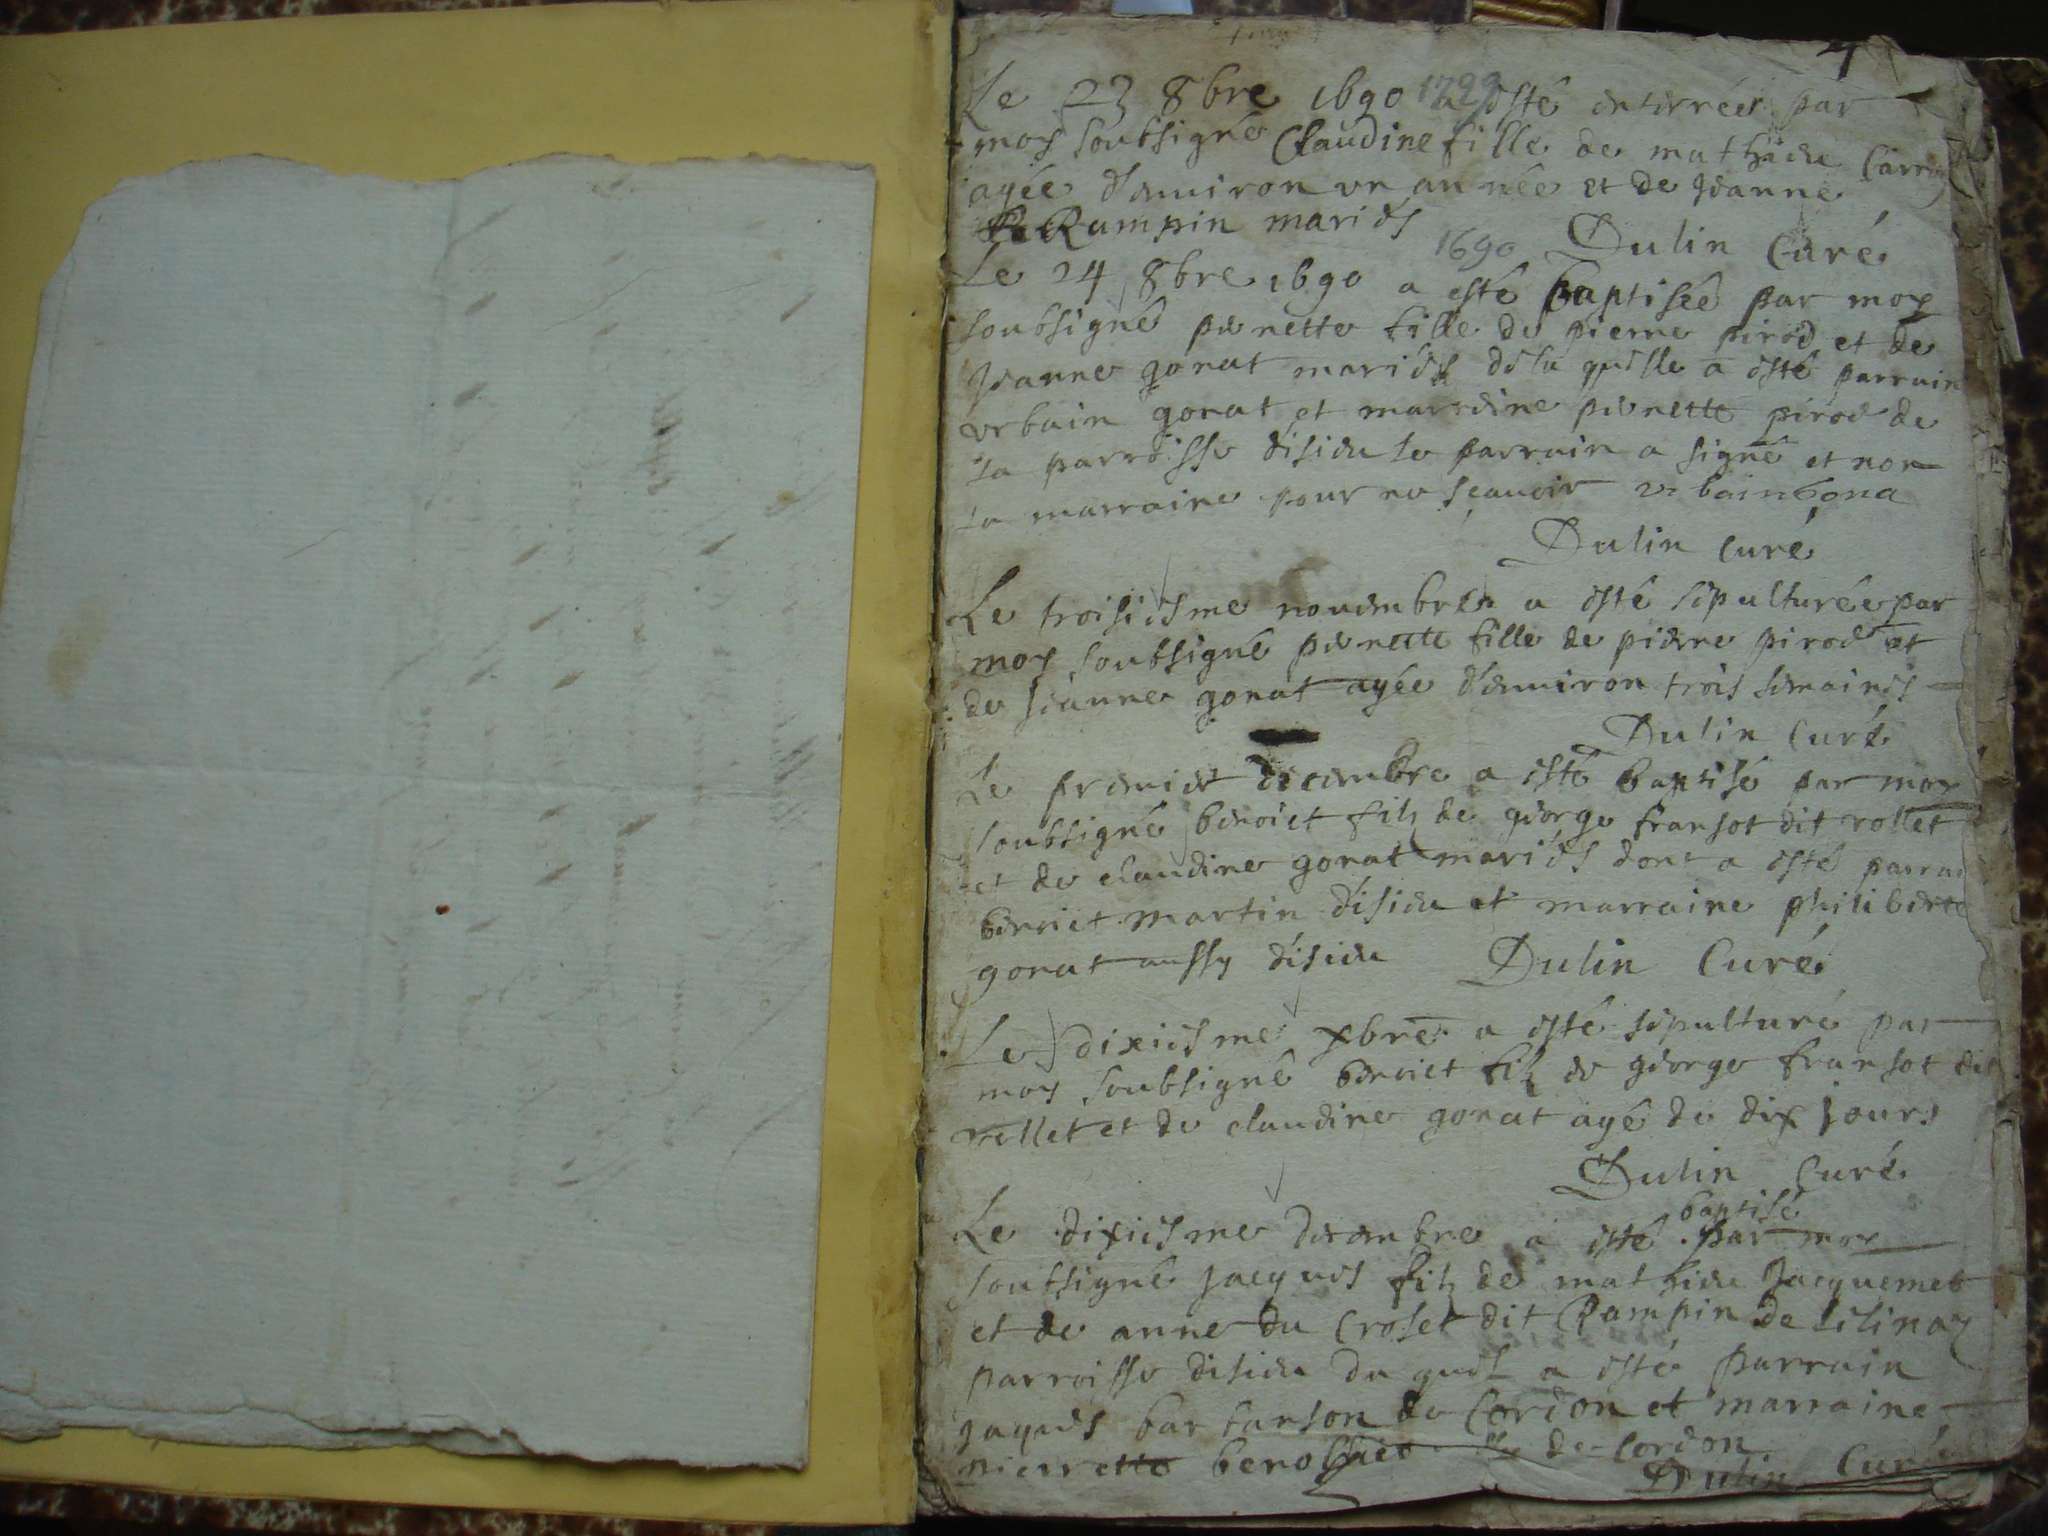 4
Le 23 8bre 1690 a esté enterrée par
moy soubsigné Claudine fille de mathieu
agée d'enuiron un année et de Jeanne
Rampin mariés Dulin Curé
1690
Le 24 8bre 1690 a esté baptisée par moy
soubsigné pernette fille de pierre pirod et de
Jeanne gonat mariés de la quelle a esté parrain
urbain gonat et marreine pernette pirod de
la parroisse d'isieu le parrain a signé et non
la marraine pour ne sçauoir urbain gona
Dulin Curé
Le troisiesme nouembre a esté sepulturée par
moy soubsigné pernette fille de pierre pirod et
de Jeanne gonat agée d'enuiron trois semaines
Dulin Curé
Le premier decembre a esté baptisé par moy
soubsigné benoict filz de george fransot dit rollet
et de claudine gonat mariés dont a esté
benoict martin d'isieu et marraine philiberte
gonat aussy d'isieu Dulin Curé
Le dixiesme xbre a esté sepulturé par
moy soubsigné benoict filz de george fransot dit
rollet et de claudine gonat agé de dix jours
Dulin Curé
baptisé
Le dixiesme decembre a esté par moy
soubsigné Jacques filz de mathieu Jacquemet
et de anne du Croset dit Rampin de
parroisse d'isieu du quel a esté parrain
Jaques de Cordon et marraine
pierrette de Cordon
Dulin Curé